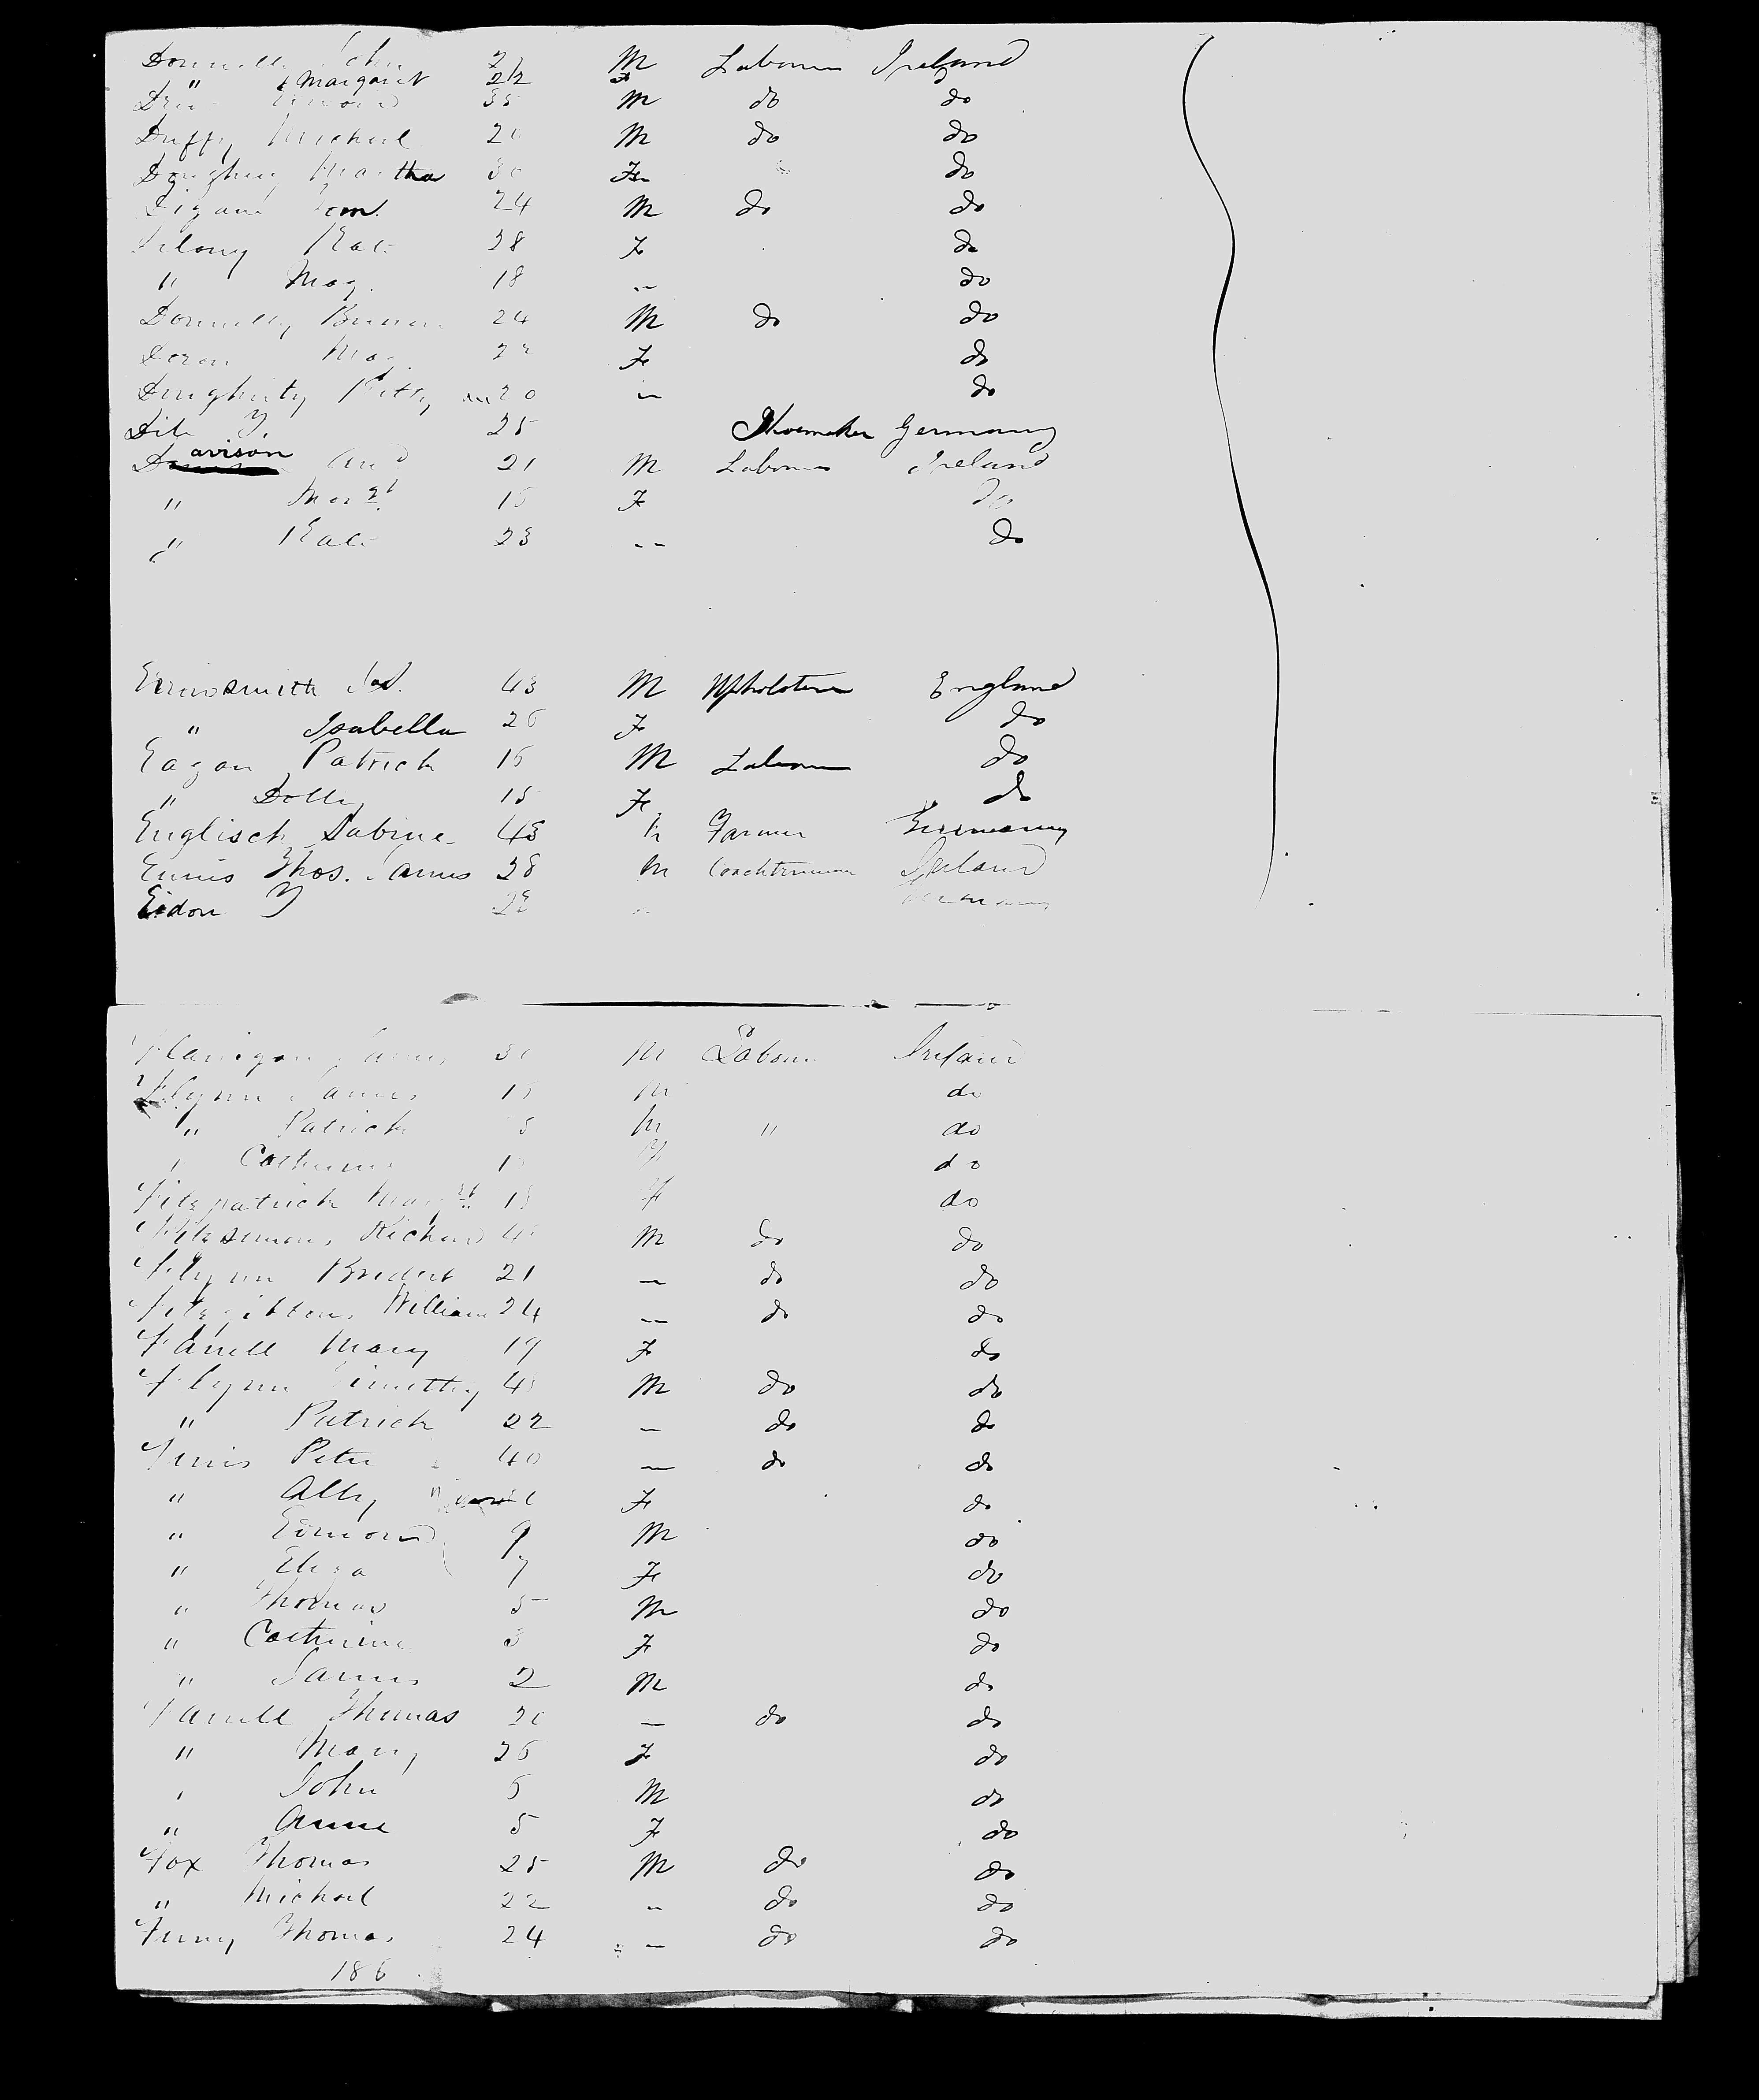 Donnelly John 21 M Labourer Ireland
" Margaret 22 F
35 M do do
Duffy Michael 20 M do do
Doughey Martha 30 F do
Digan 24 M do do
Delany Kate 28 F do
" Mag. 18 " do
Donnelly 24 M do do
Doran Mag. F do
Dougherty Kitty 20 " do
25 Shoemaker Germany
Davison And 21 M Labourer Ireland
" Margt 16 F do
" Kate 23 -- do
Errowsmith Jos. 43 M Upholsterer England
" Isabella 26 F do
Eagan Patrick 16 M Labourer do
" Dolly 15 F do
Englisch Sabine 48 M Farmer Germany
Ennis Thos. James 28 M Coachtrimmer Ireland
Eidon Y 28 Germany
Flanigan James 30 M Labourer Ireland
Flynn James M do
" Patrick M " do
" Catherine F do
Fitzpatrick Margt 18 F do
Fitzsimons Richard M do do
Flynn Bridert 21 – do do
Fitzgibbons William 24 -- do do
Farrell Mary 19 F do
Flynn Timothy M do do
" Patrick 22 – do do
Finis Peter 40 – do do
" Ally F do
" Edmond 9 M do
" Eliza 7 F do
" Thomas 5 M do
" Catherine 3 F do
" James 2 M do
Farrell Thomas 30 – do do
" Mary 26 F do
" John 6 M do
" Anne 5 F do
Fox Thomas 25 M do do
" Michael 22 " do do
Finny Thomas 24 – do do
186